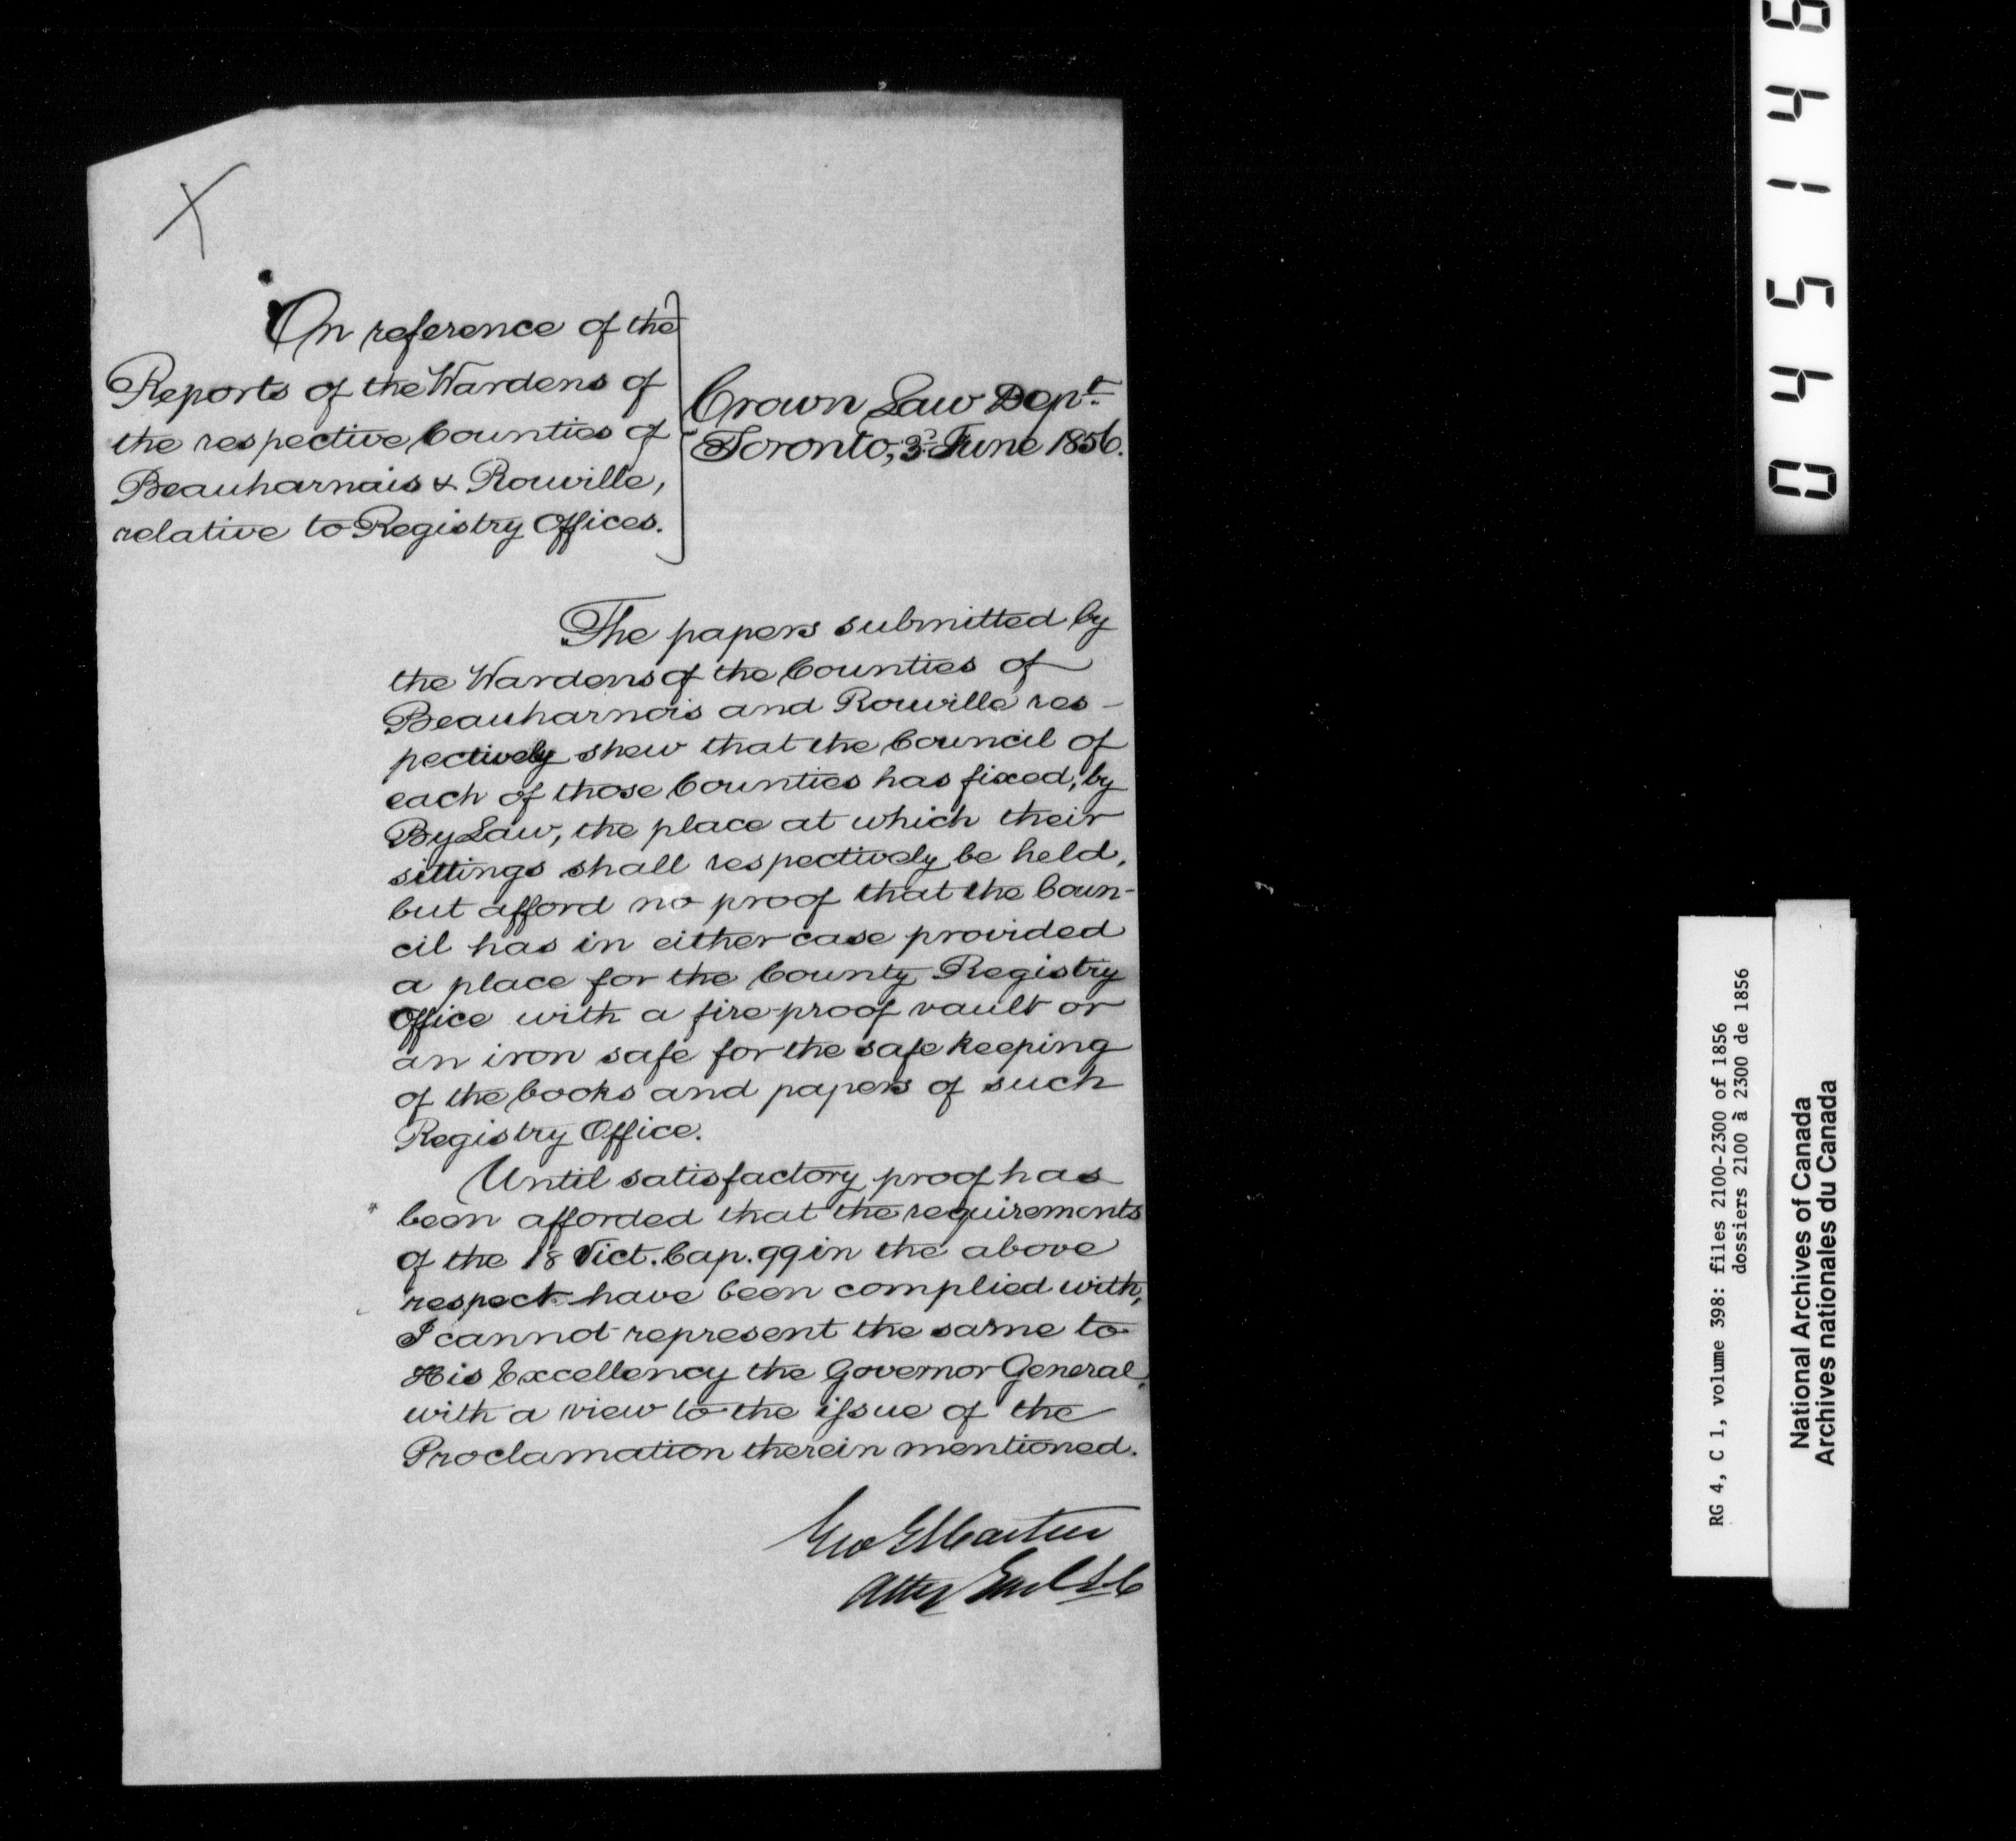 X
On reference of the
Reports of the Wardens of
the respective Counties of
Beauharnais & Rouville,
relative to Registry Offices.
Crown Law Dept.
Toronto, 3d June 1856.
The papers submitted by
the Wardens of the Counties of
Beauharnois and Rouville res-
pectively shew that the Council of
each of those Counties has fixed, by
By Law, the place at which their
sittings shall respectively be held,
but afford no proof that the Coun-
cil has in either case provided
a place for the County Registry
Office with a fire-proof vault or
an iron safe for the safe keeping
of the books and papers of such
Registry Office.
Until satisfactory proof has
been afforded that the requirements
of the 18 Vict. Cap. 99 in the above
respect have been complied with,
I cannot represent the same to
His Excellency the Governor General,
with a view to the issue of the
Proclamation therein mentioned.
Geo E Cartier
Atty Genl L C
0 4 5 1 4 6
RG 4, C 1, volume 398: files 2100-2300 of 1856
dossiers 2100 à 2300 de 1856
National Archives of Canada
Archives nationales du Canada